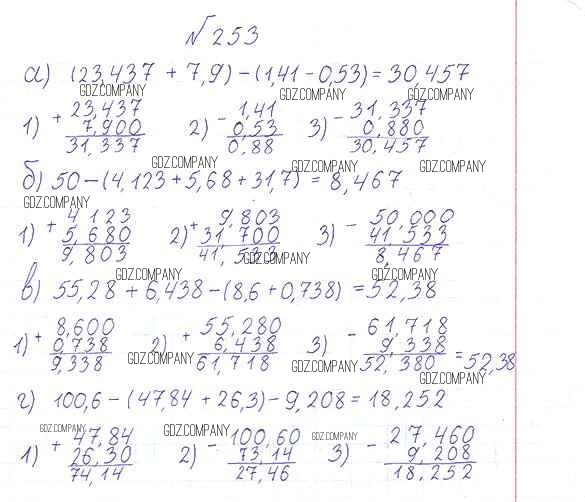 №253
а) (23,437 + 7,9) - (1,41 - 0,53) = 30,457
GDZ.COMPANY GDZ.COMPANY GDZ.COMPANY
1) + 23,437 2) - 1,41 3) - 31,337
7,900 0,53 0,880
31,337 0,88 30,457
GDZ.COMPANY GDZ.COMPANY GDZ.COMPANY
б) 50 - (4,123 + 5,68 + 31,7) = 8,467
GDZ.COMPANY
1) + 4 123 2) + 9,803 3) - 50,000
5,680 31,700 41,533
9,803 41,533 8,467
GDZ.COMPANY
GDZ.COMPANY GDZ.COMPANY
в) 55,28 + 6,438 - (8,6 + 0,738) = 52,38
1) + 8,600 2) + 55,280 3) - 61,718
0,738 6,438 9,338
9,338 61,718 52,380 = 52,38
GDZ.COMPANY GDZ.COMPANY GDZ.COMPANY
г) 100,6 - (47,84 + 26,3) - 9,208 = 18,252
GDZ.COMPANY GDZ.COMPANY GDZ.COMPANY
1) + 47,84 2) - 100,60 3) - 27,460
26,30 73,14 9,208
74,14 27,46 18,252